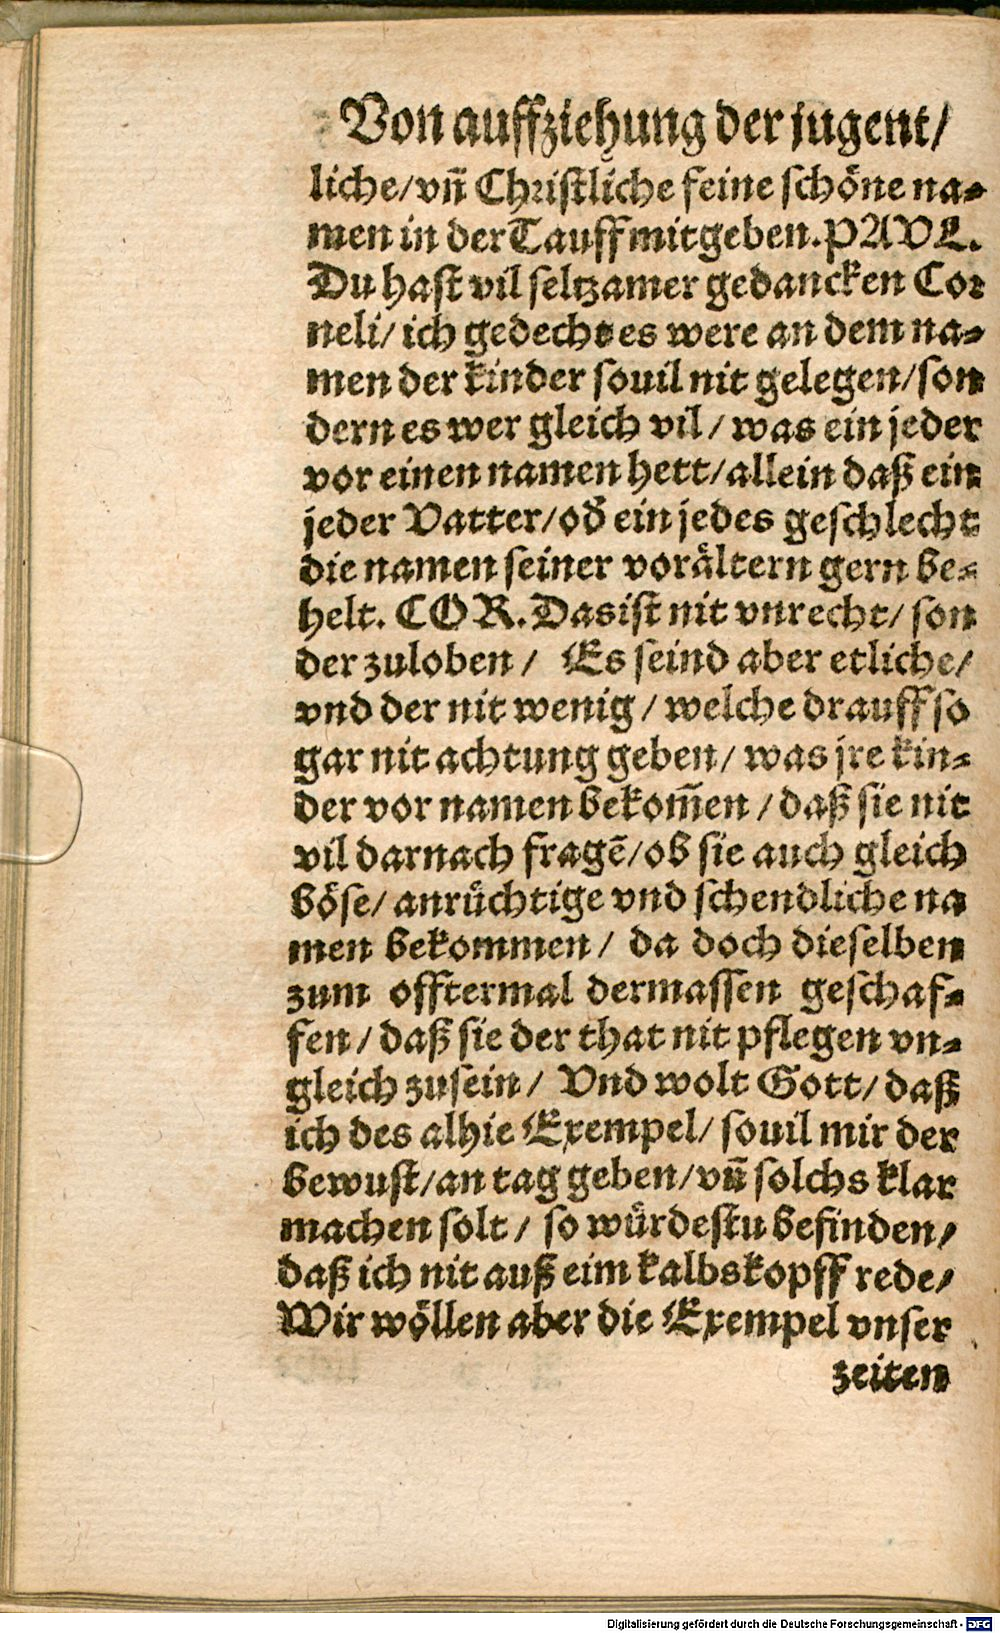 Von auffziehung der jugent/
liche/vñ Christliche feine schöne na-
men in der Tauff mitgeben. PAVL.
Du hast vil seltzamer gedancken Cor
neli/ ich gedecht es were an dem na-
men der kinder souil nit gelegen/son
dern es wer gleich vil/ was ein jeder
vor einen namen hett/allein daß ein
jeder Vatter/od̄ ein jedes geschlecht
die namen seiner vorältern gern be-
helt. COR. Das ist nit vnrecht/ son
der zuloben/ Es seind aber etliche/
vnd der nit wenig/ welche drauff so
gar nit achtung geben/ was jre kin-
der vor namen bekom̃en/daß sie nit
vil darnach fragẽ/ob sie auch gleich
böse/ anrüchtige vnd schendliche na
men bekommen/ da doch dieselben
zum offtermal dermassen geschaf-
fen/daß sie der that nit pflegen vn-
gleich zusein/ Vnd wolt Gott/daß
ich des alhie Exempel/souil mir der
bewust/an tag geben/vñ solchs klar
machen solt/ so würdestu befinden/
daß ich nit auß eim kalbskopff rede/
Wir wöllen aber die Exempel vnser
zeiten
Digitalisierung gefördert durch die Deutsche Forschungsgemeinschaft - DFG